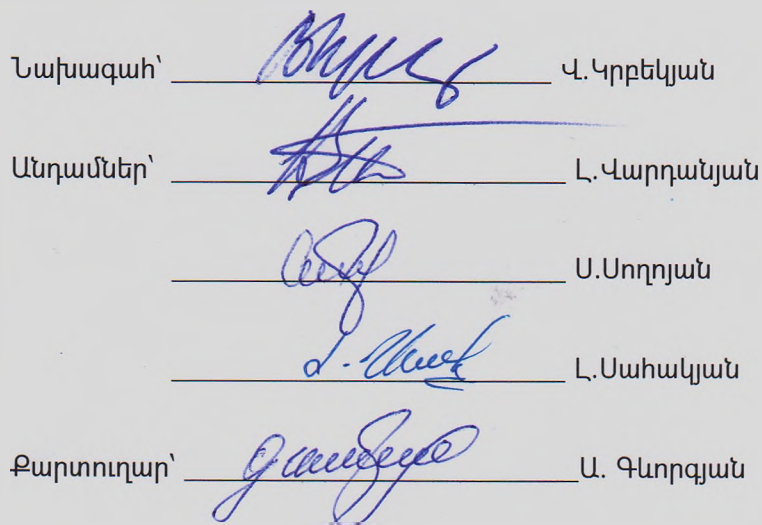 Նախագահ՝ Վ.Կրբեկյան
Անդամներ՝ Լ.Վարդանյան
Ս.Սողոյան
Լ.Սահակյան
Քարտուղար՝ Ա. Գևորգյան